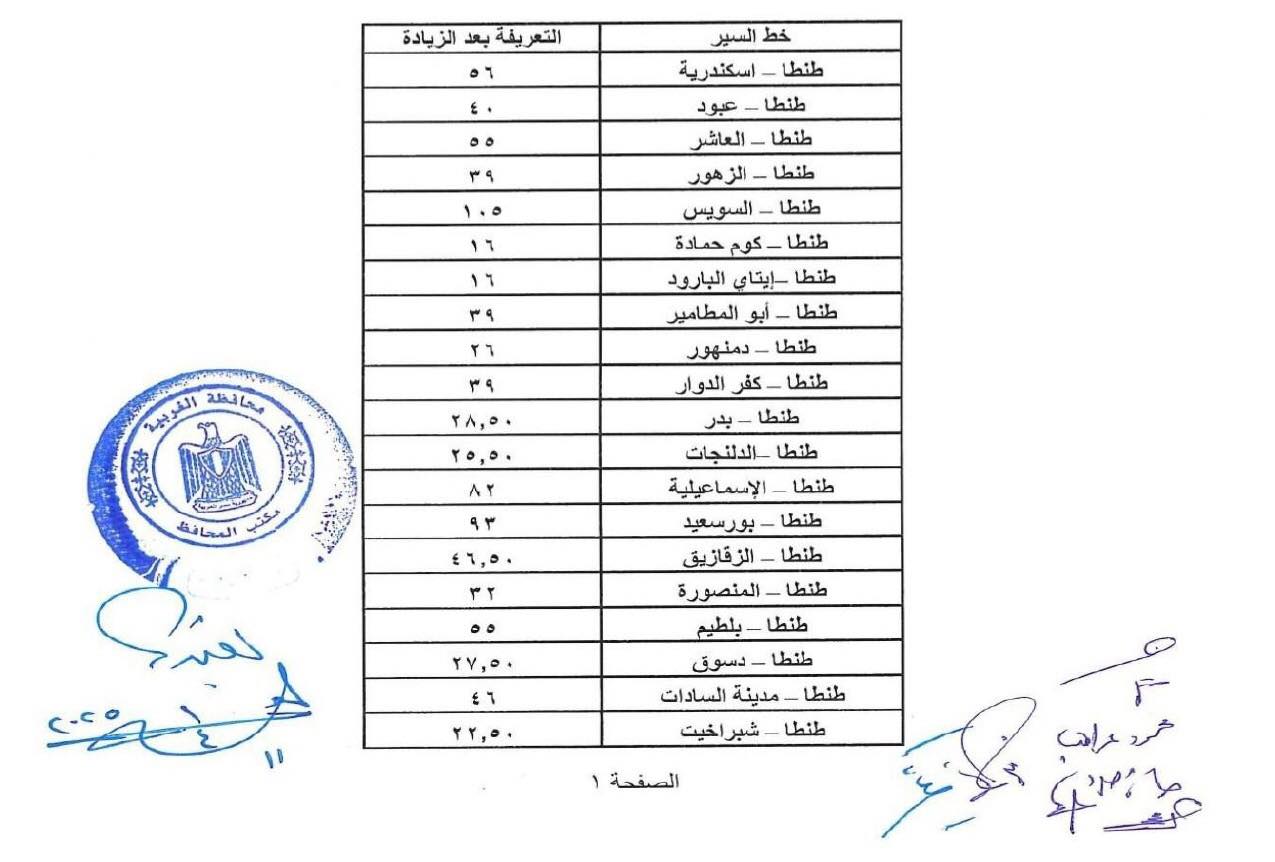 خط السير	التعريفة بعد الزيادة
طنطا – اسكندرية	٥٦
طنطا – عبود	٤٠
طنطا – العاشر	٥٥
طنطا – الزهور	٣٩
طنطا – السويس	١٠٥
طنطا – كوم حمادة	١٦
طنطا –إيتاي البارود	١٦
طنطا – أبو المطامير	٣٩
طنطا – دمنهور	٢٦
طنطا – كفر الدوار	٣٩
طنطا – بدر	٢٨,٥٠
طنطا –الدلنجات	٢٥,٥٠
طنطا – الإسماعيلية	٨٢
طنطا – بورسعيد	٩٣
طنطا – الزقازيق	٤٦,٥٠
طنطا – المنصورة	٣٢
طنطا – بلطيم	٥٥
طنطا – دسوق	٢٧,٥٠
طنطا – مدينة السادات	٤٦
طنطا – شبراخيت	٢٢,٥٠
الصفحة ١
محافظة الغربية
مكتب المحافظ
٢٠٢٥